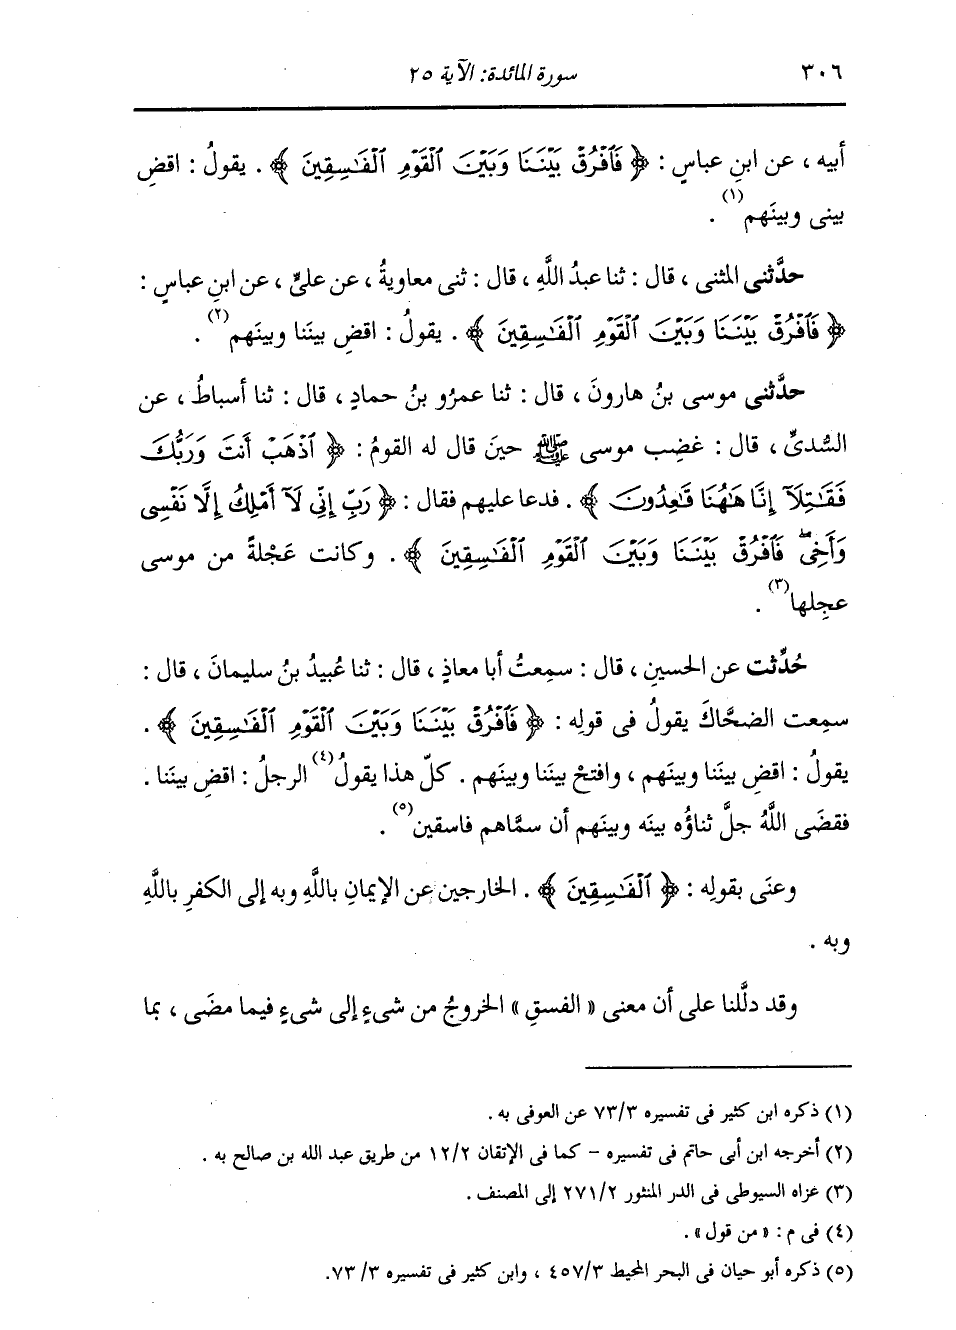 ٣٠٦ سورة المائدة: الآية ٢٥
أبيه ، عن ابنِ عباسٍ : ﴿ فَافْرُقْ بَيْنَنَا وَبَيْنَ الْقَوْمِ الْفَاسِقِينَ ﴾ . يقولُ : اقضِ
بينى وبينَهم(١) .
حدَّثنى المثنى ، قال : ثنا عبدُ اللَّهِ ، قال : ثنى معاويةُ ، عن علىٍّ ، عن ابنِ عباسٍ :
﴿ فَافْرُقْ بَيْنَنَا وَبَيْنَ الْقَوْمِ الْفَاسِقِينَ ﴾ . يقولُ : اقضِ بينَنا وبينَهم(٢) .
حدَّثنى موسى بنُ هارونَ ، قال : ثنا عمرُو بنُ حمادٍ ، قال : ثنا أسباطُ ، عن
السُّدىِّ ، قال : غضِب موسى ﷺ حينَ قال له القومُ : ﴿ اذْهَبْ أَنتَ وَرَبُّكَ
فَقَاتِلَا إِنَّا هَاهُنَا قَاعِدُونَ ﴾ . فدعا عليهم فقال : ﴿ رَبِّ إِنِّي لَا أَمْلِكُ إِلَّا نَفْسِي
وَأَخِي فَافْرُقْ بَيْنَنَا وَبَيْنَ الْقَوْمِ الْفَاسِقِينَ ﴾ . وكانت عَجْلةً من موسى
عجِلها(٣) .
حُدِّثت عن الحسينِ ، قال : سمِعتُ أبا معاذٍ ، قال : ثنا عُبيدُ بنُ سليمانَ ، قال :
سمِعت الضحَّاكَ يقولُ فى قولِه : ﴿ فَافْرُقْ بَيْنَنَا وَبَيْنَ الْقَوْمِ الْفَاسِقِينَ ﴾ .
يقولُ : اقضِ بينَنا وبينَهم ، وافتحْ بينَنا وبينَهم . كلّ هذا يقولُ(٤) الرجلُ : اقضِ بينَنا .
فقضَى اللَّهُ جلَّ ثناؤُه بينَه وبينَهم أن سمَّاهم فاسقين(٥) .
وعنَى بقولِه : ﴿ الْفَاسِقِينَ ﴾ . الخارجين عن الإيمانِ باللَّهِ وبه إلى الكفرِ باللَّهِ
وبه .
وقد دلَّلنا على أن معنى « الفسقِ » الخروجُ من شىءٍ إلى شىءٍ فيما مضَى ، بما
(١) ذكره ابن كثير فى تفسيره ٧٣/٣ عن العوفى به .
(٢) أخرجه ابن أبى حاتم فى تفسيره – كما فى الإتقان ١٢/٢ من طريق عبد الله بن صالح به .
(٣) عزاه السيوطى فى الدر المنثور ٢٧١/٢ إلى المصنف .
(٤) فى م : « من قول » .
(٥) ذكره أبو حيان فى البحر المحيط ٤٥٧/٣ ، وابن كثير فى تفسيره ٧٣/٣.